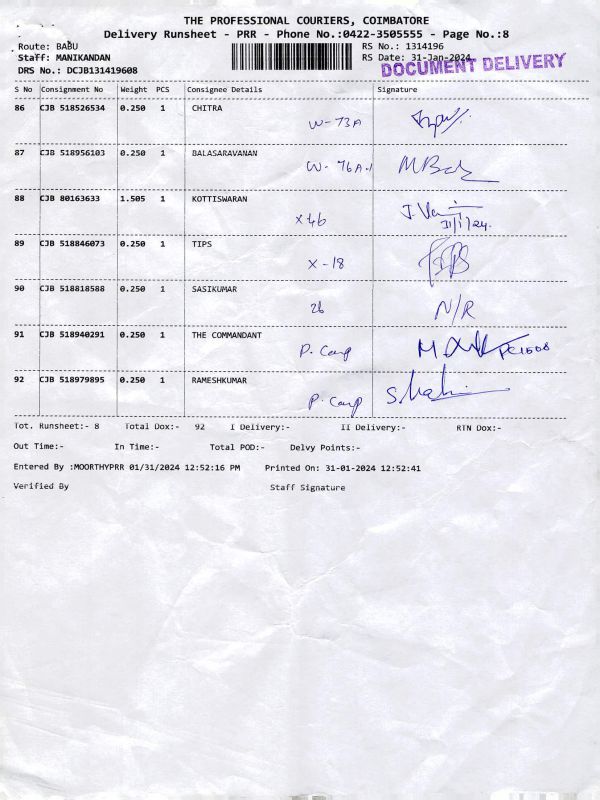 THE PROFESSIONAL COURIERS, COIMBATORE
Delivery Runsheet - PRR - Phone No.:0422-3505555 - Page No.:8
Route: BABU RS No.: 1314196
Staff: MANIKANDAN RS Date: 31-Jan-2024
DRS No.: DCJB131419608 DOCUMENT DELIVERY
S No Consignment No Weight PCS Consignee Details Signature
86 CJB 518526534 0.250 1 CHITRA
W-73A
87 CJB 518956103 0.250 1 BALASARAVANAN
W-76A-1
88 CJB 80163633 1.505 1 KOTTISWARAN
X46
31/1/24.
89 CJB 518846073 0.250 1 TIPS
X-18
90 CJB 518818588 0.250 1 SASIKUMAR
26 N/R
91 CJB 518940291 0.250 1 THE COMMANDANT
P. Camp PC1508
92 CJB 518979895 0.250 1 RAMESHKUMAR
P. Camp
Tot. Runsheet:- 8 Total Dox:- 92 I Delivery:- II Delivery:- RTN Dox:-
Out Time:- In Time:- Total POD:- Delvy Points:-
Entered By :MOORTHYPRR 01/31/2024 12:52:16 PM Printed On: 31-01-2024 12:52:41
Verified By Staff Signature